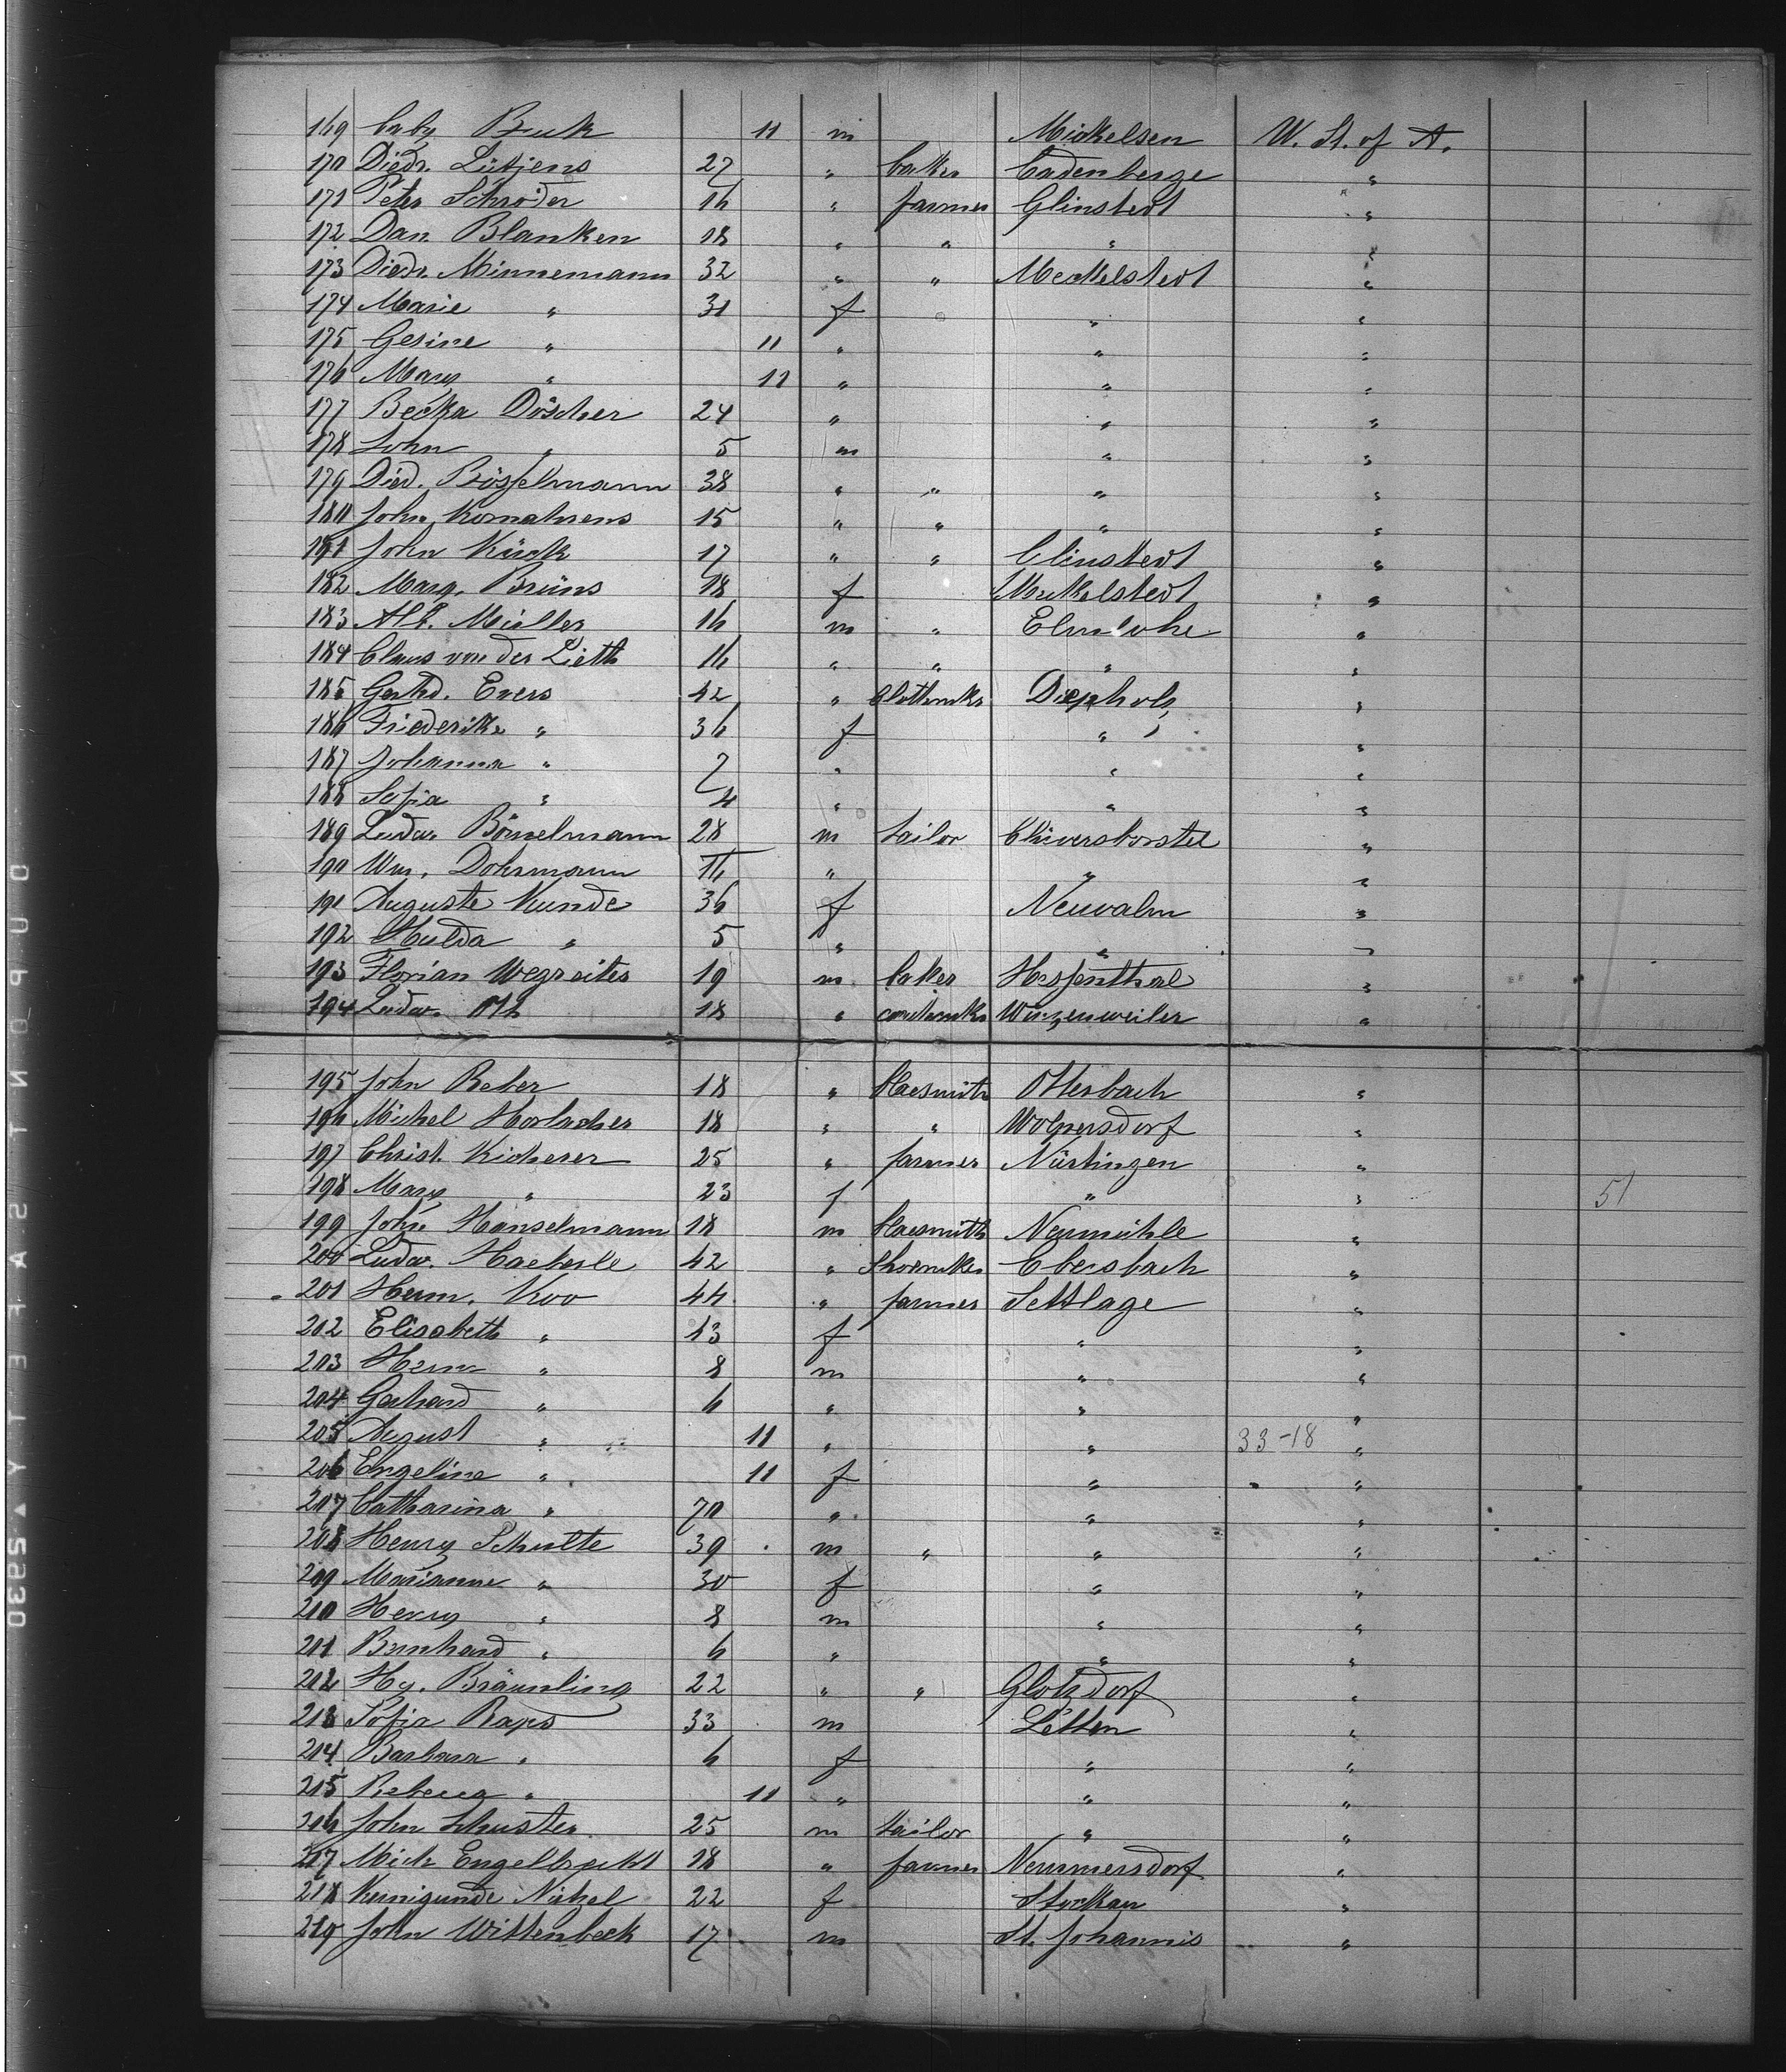 169 baby Buck 11 m Mickelsen U. St. of A.
170 Diedr. Lütjens 27 " baker Cadenberge "
171 Peter Schröder 16 " farmer Glinstedt "
172 Dan. Blanken 18 " " " "
173 Diedr. Minnemann 32 " " Meckelstedt "
174 Marie " 31 f " "
175 Gesine " 11 " " "
176 Mary " 11 " " "
177 Becka Döscher 24 " " "
178 John " 5 m " "
179 Died. Bösselmann 38 " " " "
180 John Kornahrens 15 " " " "
181 John Kück 17 " " Glinstedt "
182 Marg. Brüns 18 f Meckelstedt "
183 Alb. Müller 16 m " Elmlohe "
184 Claus von der Lieth 16 " " " "
185 Gerhd. Evers 42 " Diepholz "
186 Friederike " 36 f " "
187 Johanna " 7 " " "
188 Sofia " 4 " " "
189 Ludw. Bömelmann 28 m tailor Clüversborstel "
190 Wm. Dohrmann 16 " " "
191 Auguste Kunde 36 f Neuvalm "
192 Hulda " 5 " " "
193 Florian Wegreiter 19 m baker Hessenthal "
194 Ludw. Ott 18 " Winzenweiler "
195 John Reber 18 " blacsmith Ottersbach "
196 Michel Horlacher 18 " " Wolpersdorf "
197 Christ. Kicherer 25 " farmer Nürtingen "
198 Mary " 23 f " " 51
199 John Hanselmann 18 m blacsmith Neumühle "
200 Ludw. Haeberle 42 " shoemker Ebersbach "
201 Herm. Koo 44 " farmer Settlage "
202 Elisabeth " 13 f " "
203 Herm " 8 m " "
204 Gerhard " 6 " " "
205 August " 11 " " 33-18 "
206 Engeline " 11 f " "
207 Catharina " 70 " " "
208 Henry Schulte 39 m " " "
209 Marianne " 30 f " "
210 Henry " 8 m " "
211 Bernhard " 6 " " "
212 Hy. Bräunling 22 " " Glotzdorf "
213 Sofia Raps 33 m Letten "
214 Barbara " 6 f " "
215 Rebecca " 11 " " "
216 John Schuster 25 m tailor " "
217 Mich Engelbrecht 18 " farmer Nemmersdorf "
218 Kunigunde Nützel 22 f Stockau "
219 John Wittenbeck 17 m St. Johannis "
DUPONT SAFETY 2S930